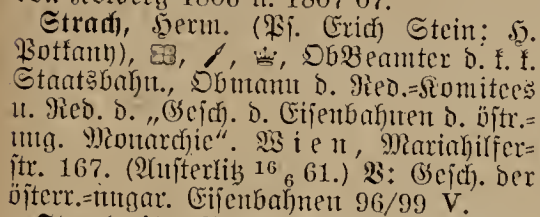 Strach, Herm. (Ps. Erich Stein; H.
Potfanh), ObBeamter d. k. k.
Staatsbahn., Obmann d. Red.=Komitees
u. Red. d. „Gesch. d. Eisenbahnen d. östr.=
ung. Monarchie“. Wien, Mariahilfer=
str. 167. (Austerlitz 16 6 61.) V: Gesch. der
österr.=ungar. Eisenbahnen 96/99 V.